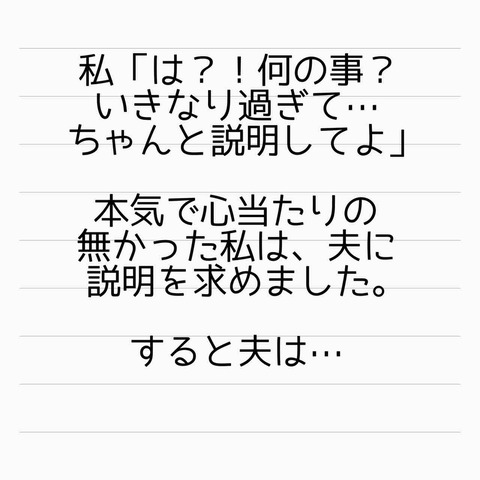 私「は？！何の事？
いきなり過ぎて…
ちゃんと説明してよ」
本気で心当たりの
無かった私は、夫に
説明を求めました。
すると夫は…